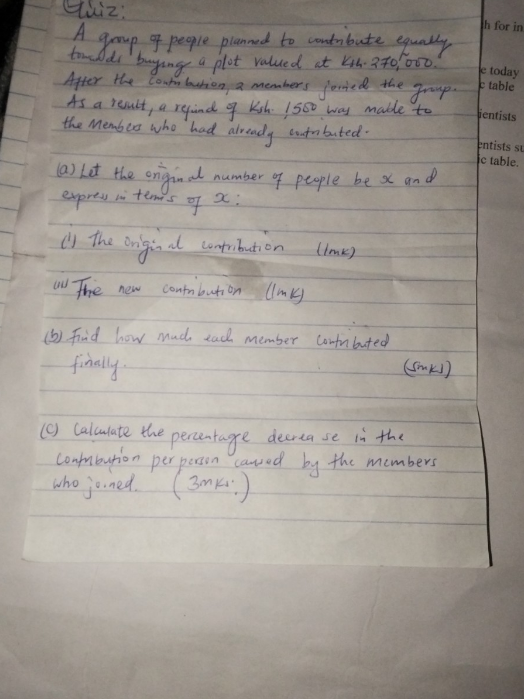 Quiz:
A group of people planned to contribute equally
towards buying a plot valued at Ksh. 270,000.
After the contribution, 2 members joined the group.
As a result, a refund of Ksh. 1,550 was made to
the members who had already contributed.
(a) Let the original number of people be x and
express in terms of x:
(i) The original contribution (1mk)
(ii) The new contribution (1mk)
(b) Find how much each member contributed
finally. (5mks)
(c) Calculate the percentage decrease in the
contribution per person caused by the members
who joined. (3mks.)
h for in
e today
c table
ientists
entists su
ic table.